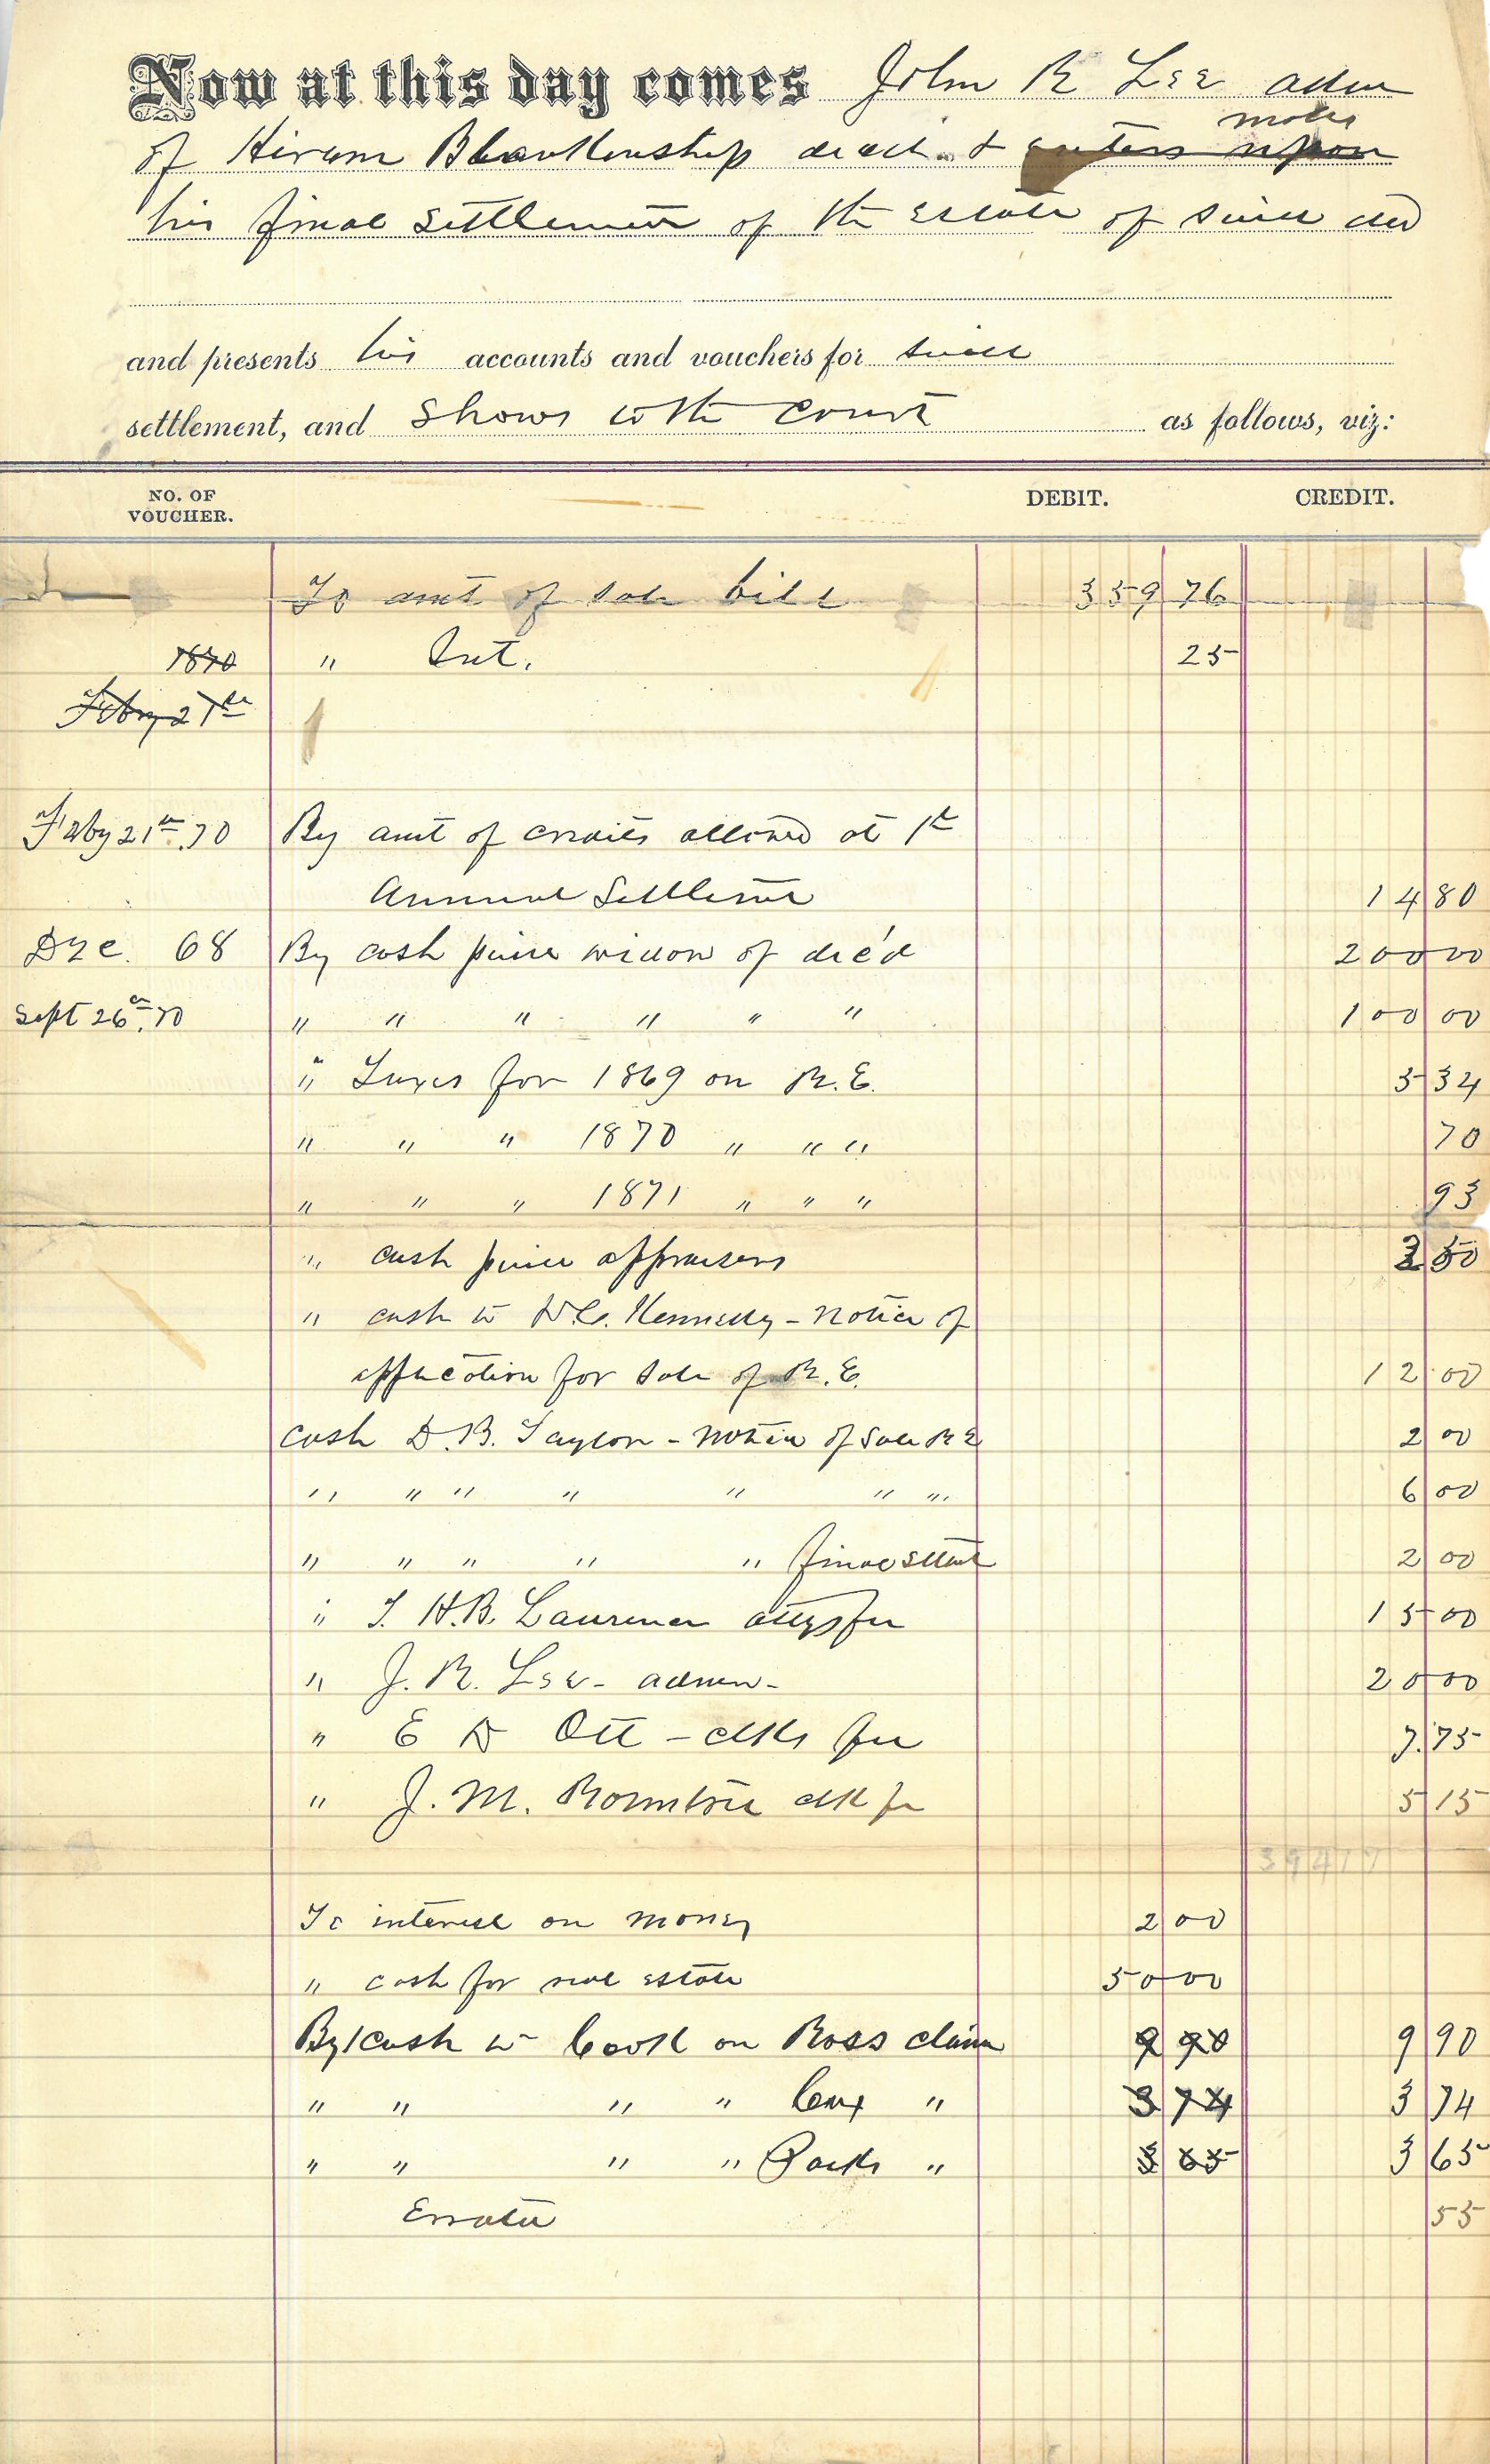 Now at this day comes John R Lee adm
makes
of Hiram Blankenship decd. & enters upon
his final settlement of the Estate of said decd
and presents his accounts and vouchers for said
settlement, and shows to the court as follows, viz:
NO. OF VOUCHER. DEBIT. CREDIT.
To amt of sale bill 359 76
1870 " Int. 25
Feby 21st
Feby 21st .70 By amt of credits allowed at 1st
Annual Settlemt 14 80
Dec. 68 By cash paid widow of dec'd 200 00
Sept 26th .70 " " " " " " 100 00
" Taxes for 1869 on R.E. 5 34
" " " 1870 " " " 70
" " " 1871 " " " 93
" cash paid appraisers 50
" cash to D.C. Kennedy - notice of
application for sale of R.E. 12 00
cash D.B. Taylor - notice of sale R E 2 00
" " " " " " " 6 00
" " " " " final settlmt 2 00
" T. H.B. Lawrence attys fee 15 00
" J. R. Lee - admr - 20 00
" E D Ott - clks fee 7.75
" J. M. Rountree clk fee 5 15
39417
To interest on money 2 00
" cash for real estate 50 00
By cash to Cook on Ross claim 9 90 9 90
" " " " Cox " 3 74 3 74
" " " " Parks " 3 65 3 65
Errata 55